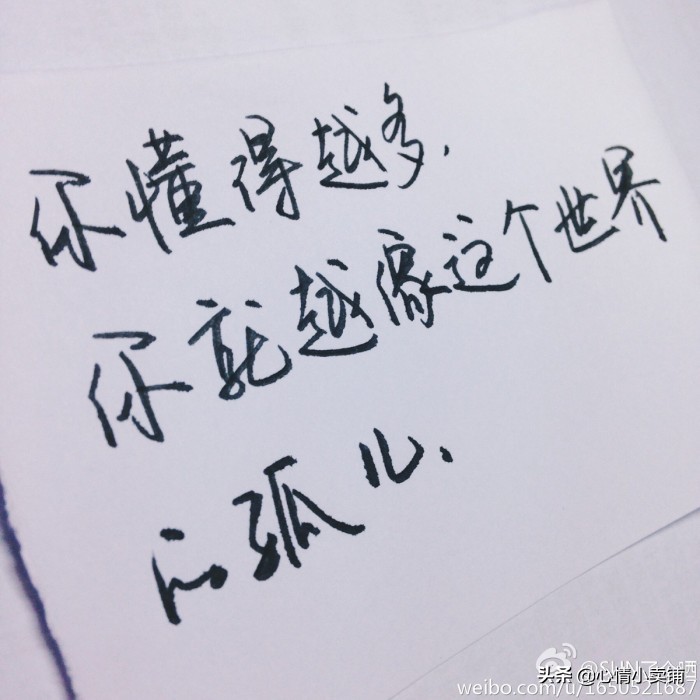 你懂得越多.
你就越像这个世界
的孤儿.
头条 @心情小卖铺